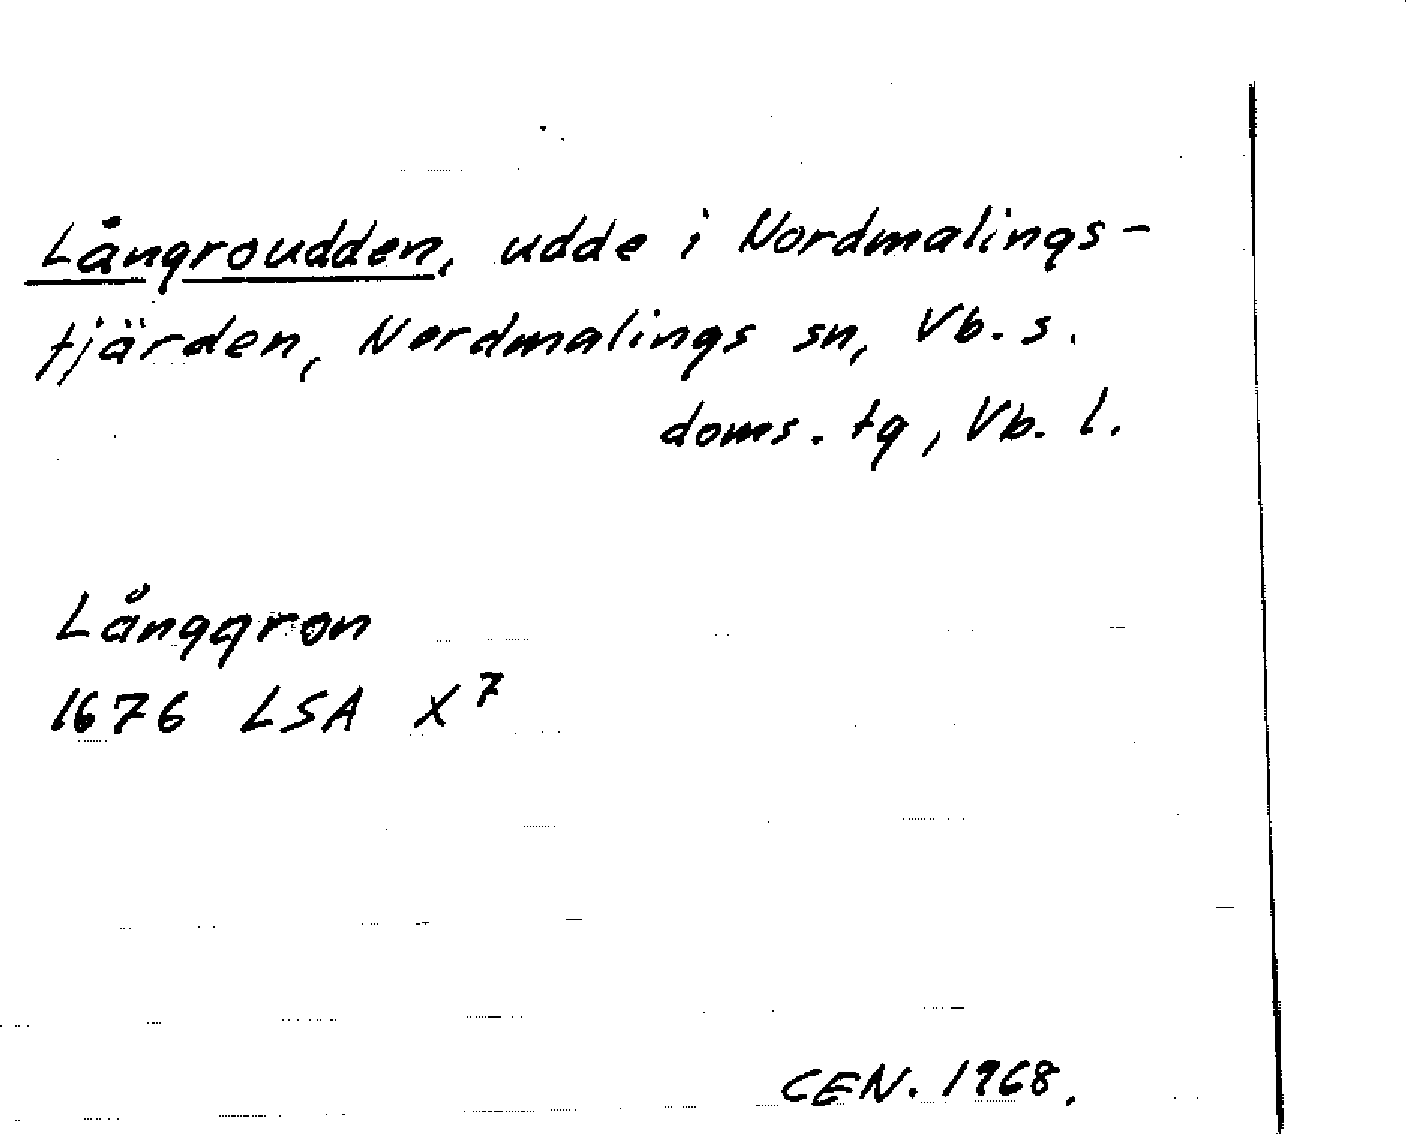 Långroudden, udde i Nordmalings-
fjärden, Nordmalings sn, Vb. s.
doms. tg, Vb. l.
Långgron
1676 LSA X⁷
CEN. 1968.